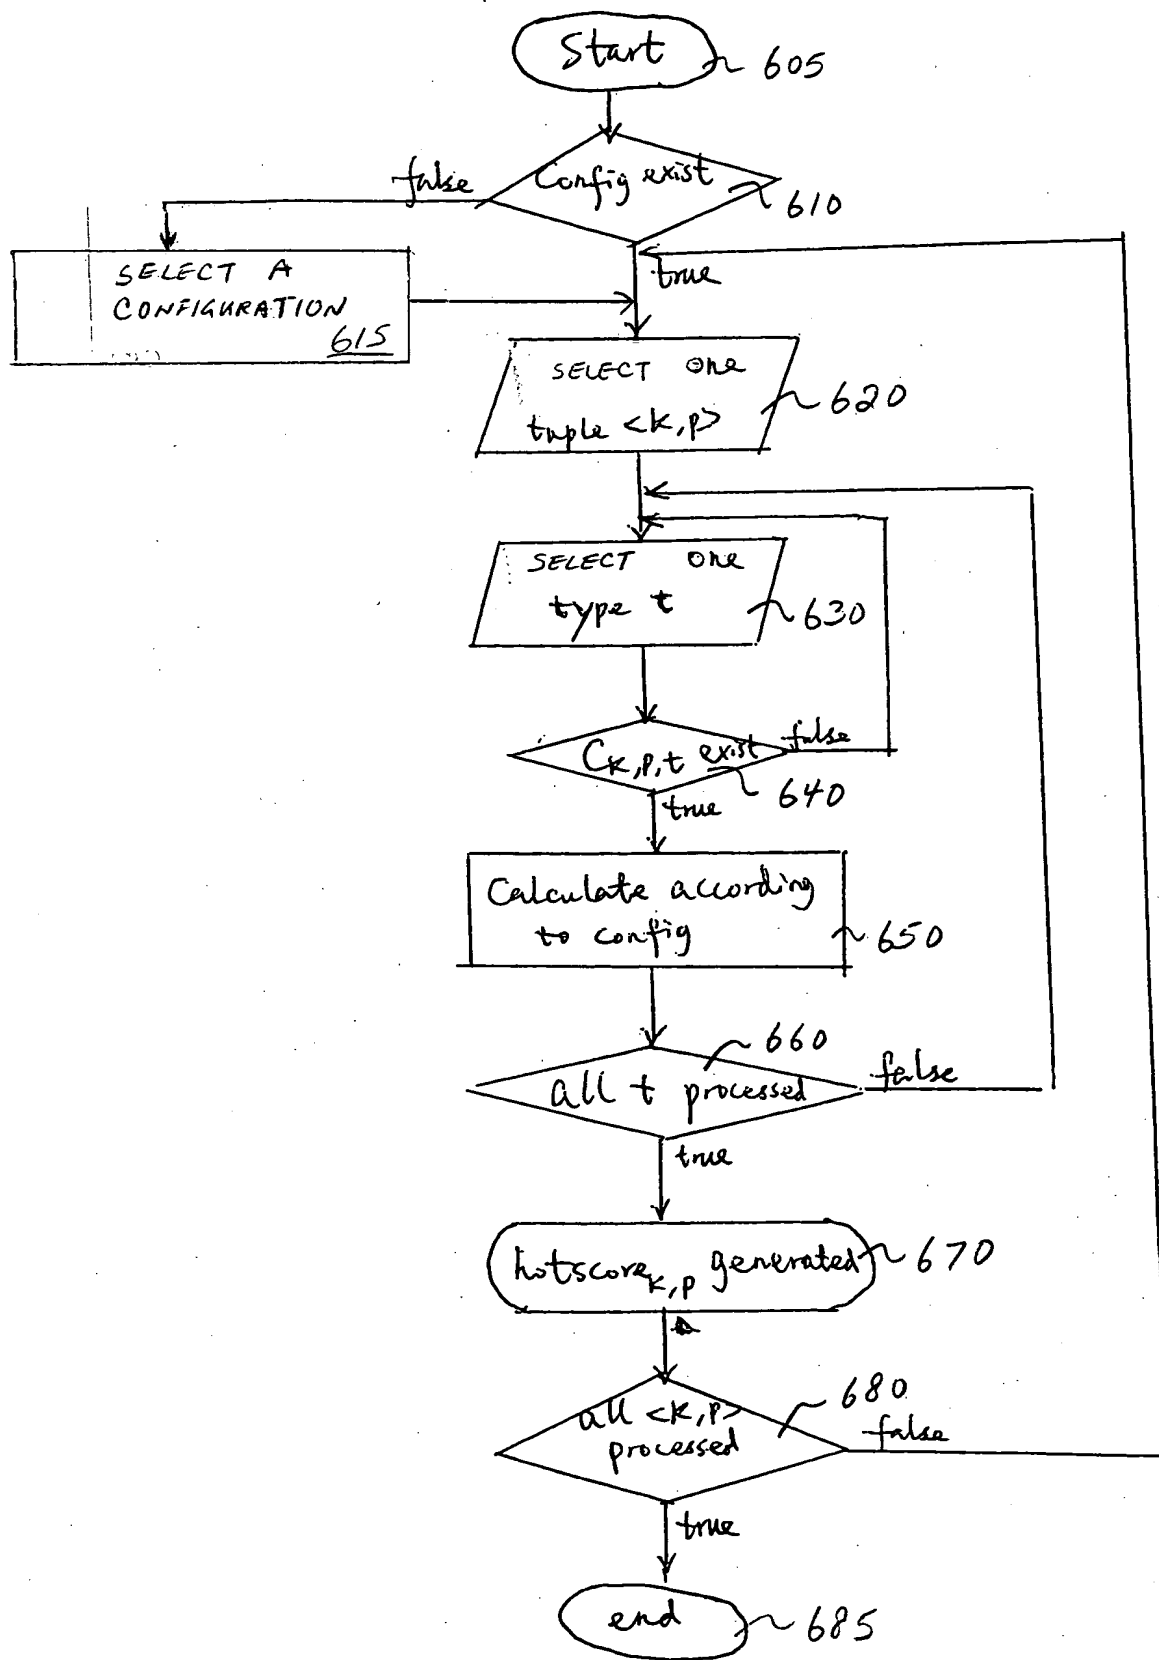 Start
605
Config exist
610
false
true
SELECT A
CONFIGURATION
615
SELECT one
tuple <k,p>
620
SELECT one
type t
630
Ck,p,t exist
false
640
true
Calculate according
to config
650
660
all t processed
false
true
hotscorek,p generated
670
680
all <k,p>
processed
false
true
end
685